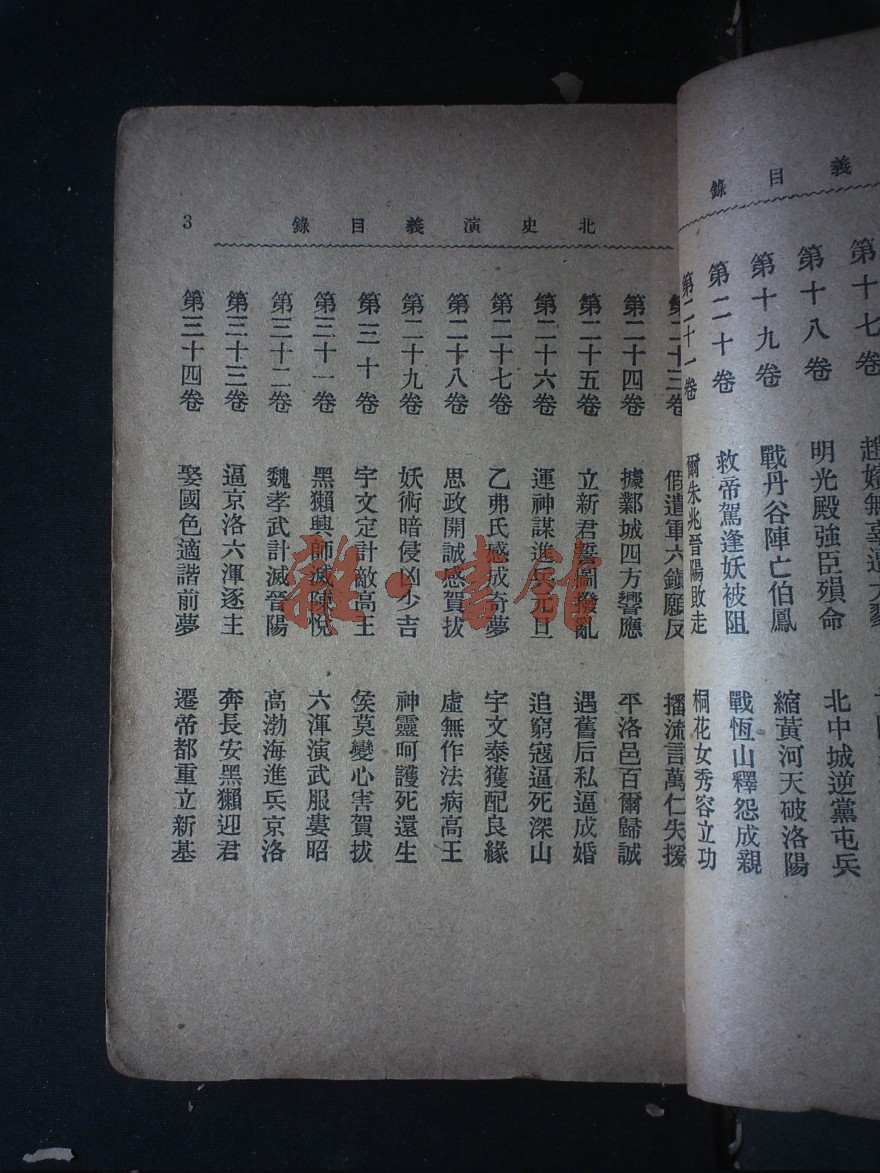 義目錄
第十七卷
第十八卷 明光殿強臣殞命 北中城逆黨屯兵
第十九卷 戰丹谷陣亡伯鳳 縮黃河天破洛陽
第二十卷 救帝駕逢妖被阻 戰恆山釋怨成親
第二十一卷 爾朱兆晉陽敗走 桐花女秀容立功
北史演義目錄 3
第二十三卷 假遣軍六鎮願反 播流言萬仁失援
第二十四卷 據鄴城四方響應 平洛邑百爾歸誠
第二十五卷 立新君誓圖撥亂 遇舊后私逼成婚
第二十六卷 運神謀進兵元旦 追窮寇逼死深山
第二十七卷 乙弗氏感成奇夢 宇文泰獲配良緣
第二十八卷 思政開誠感賀拔 虛無作法病高王
第二十九卷 妖術暗侵凶少吉 神靈呵護死還生
第三十卷 宇文定計敵高王 侯莫變心害賀拔
第三十一卷 黑獺興師滅陳悅 六渾演武服婁昭
第三十二卷 魏孝武計滅晉陽 高渤海進兵京洛
第三十三卷 逼京洛六渾逐主 奔長安黑獺迎君
第三十四卷 娶國色適諧前夢 遷帝都重立新基
雜·書館